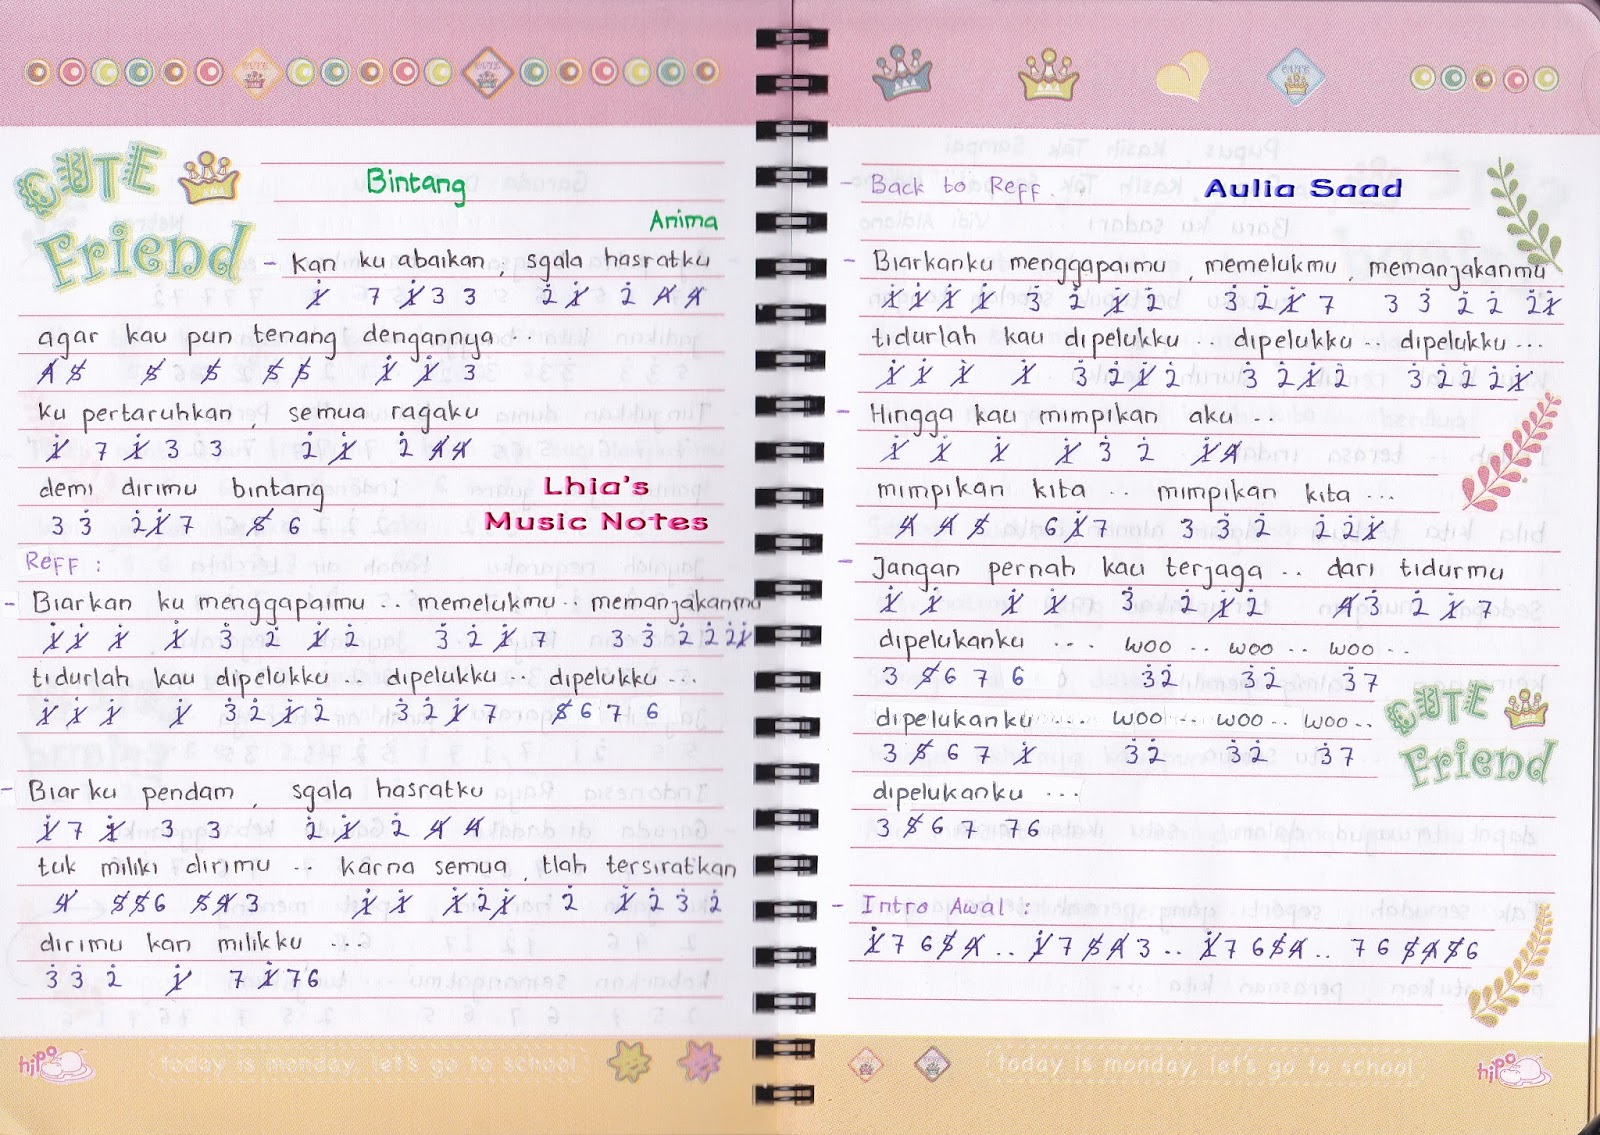 CUTE Friend
Bintang
Anima
- Kan ku abaikan, sgala hasratku
1 7 1 3 3 2 1 2 4 4
agar kau pun tenang dengannya ..
4 5 5 5 5 5 1 1 3
ku pertaruhkan, semua ragaku
1 7 1 3 3 2 1 2 4 4
demi dirimu bintang
3 3 2 1 7 5 6
Lhia's
Music Notes
Reff :
- Biarkan ku menggapaimu .. memelukmu .. memanjakanmu
1 1 1 1 3 2 1 2 3 2 1 7 3 3 2 2 2 1
tidurlah kau dipelukku ... dipelukku .. dipelukku ...
1 1 1 1 3 2 1 2 3 2 1 7 5 6 7 6
- Biar ku pendam, sgala hasratku
1 7 1 3 3 2 1 2 4 4
tuk miliki dirimu .. karna semua, tlah tersiratkan
4 5 5 6 5 4 3 1 1 1 2 1 2 1 2 3 2
dirimu kan milikku ...
3 3 2 1 7 1 7 6
hipo
today is monday, let's go to school
- Back to Reff.
Aulia Saad
- Biarkanku menggapaimu, memelukmu, memanjakanmu
1 1 1 1 3 2 1 2 3 2 1 7 3 3 2 2 2 1
tidurlah kau dipelukku .. dipelukku .. dipelukku ...
1 1 1 1 3 2 1 2 3 2 1 2 3 2 2 2 1
- Hingga kau mimpikan aku ..
1 1 1 1 3 2 1 4
mimpikan kita .. mimpikan kita ...
4 4 5 6 1 7 3 3 2 2 2 1
- Jangan pernah kau terjaga .. dari tidurmu
1 1 1 1 3 2 1 2 4 3 2 1 7
dipelukanku ... woo .. woo .. woo ..
3 5 6 7 6 3 2 3 2 3 7
dipelukanku .... woo ... woo .. woo ..
3 5 6 7 1 3 2 3 2 3 7
dipelukanku ...
3 5 6 7 7 6
CUTE Friend
- Intro Awal :
1 7 6 5 4 .. 1 7 5 4 3 .. 1 7 6 5 4 .. 7 6 5 4 5 6
today is monday, let's go to school
hipo